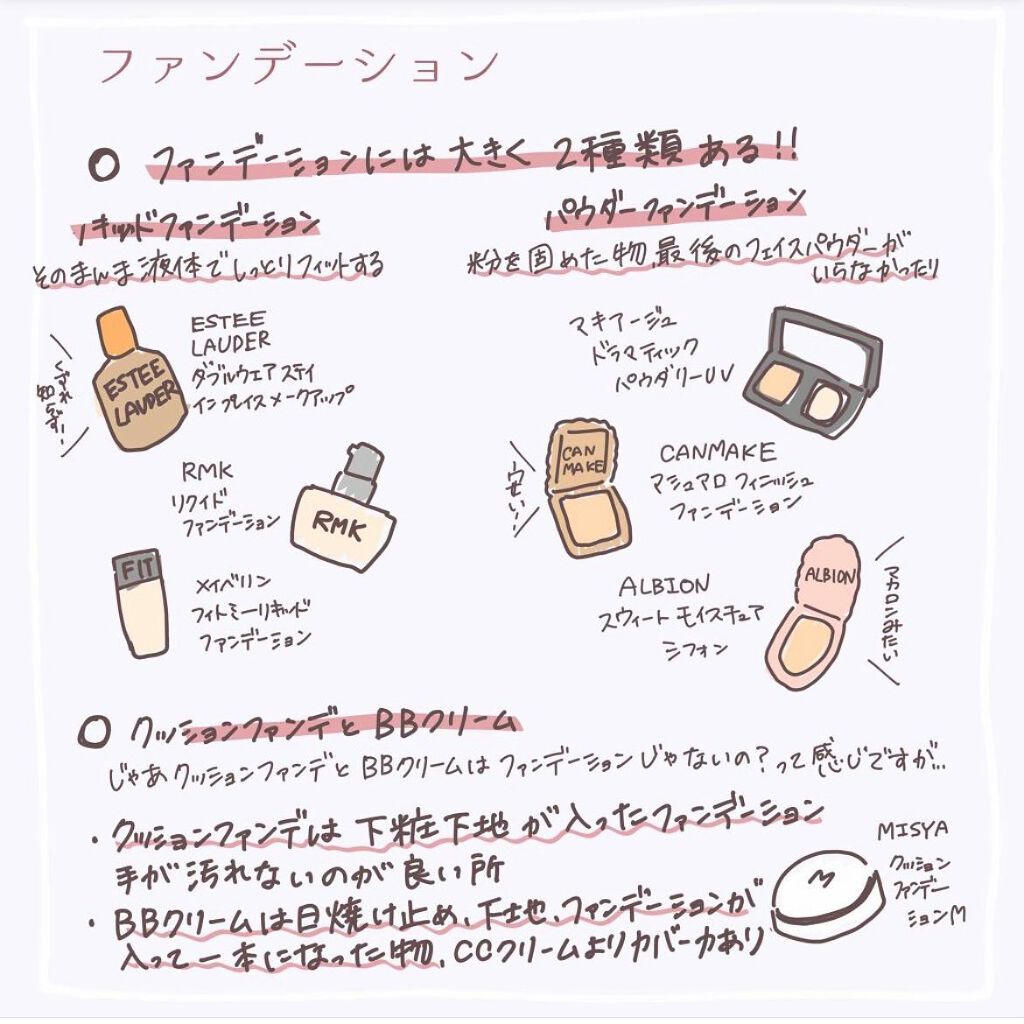 ファンデーション
ファンデーションには大きく2種類ある!!
リキッドファンデーション
そのまんま液体でしっとりフィットする
ESTEE
LAUDER
ダブルウェア ステイ
イン プレイス メークアップ
ESTEE
LAUDER
くずれ
知らず!
RMK
リクイド
ファンデーション
RMK
FIT
メイベリン
フィットミーリキッド
ファンデーション
パウダーファンデーション
粉分を固めた物、最後のフェイスパウダーが
いらなかったり
マキアージュ
ドラマティック
パウダリーUV
CAN
MAKE
うせい!
CANMAKE
マシュマロ フィニッシュ
ファンデーション
ALBION
スウィート モイスチュア
シフォン
ALBION
マカロンみたい
クッションファンデとBBクリーム
じゃあクッションファンデとBBクリームはファンデーションじゃないの?って感じですが…
・クッションファンデは下粧下地が入ったファンデーション
手が汚れないのが良い所
・BBクリームは日焼け止め、下地、ファンデーションが
入って一本になった物、CCクリームよりカバー力あり
M
MISYA
クッション
ファンデー
ションM